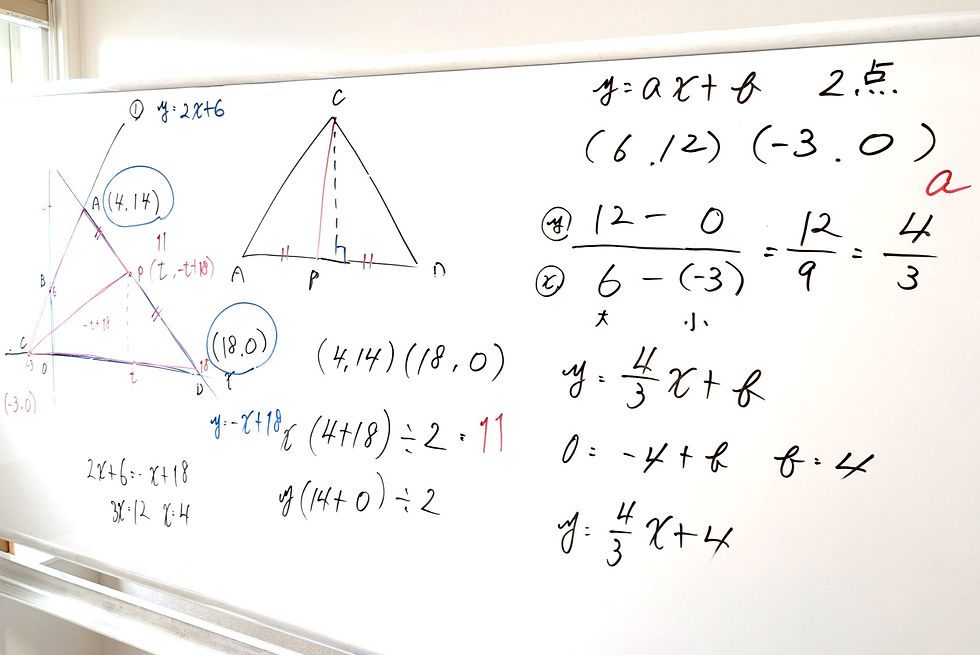 ① y=2x+6
A (4,14)
11
P (t, -t+18)
B 6
-t+18
C -3 O
(-3,0)
t
18
D x
(18,0)
y=-x+18
2x+6=-x+18
3x=12 x=4
C
A P D
(4,14)(18,0)
x (4+18)÷2=11
y(14+0)÷2
y=ax+b 2点
(6,12) (-3,0)
a
y 12-0
x 6-(-3)
= 12/9 = 4/3
大 小
y=4/3x+b
0=-4+b b=4
y=4/3x+4